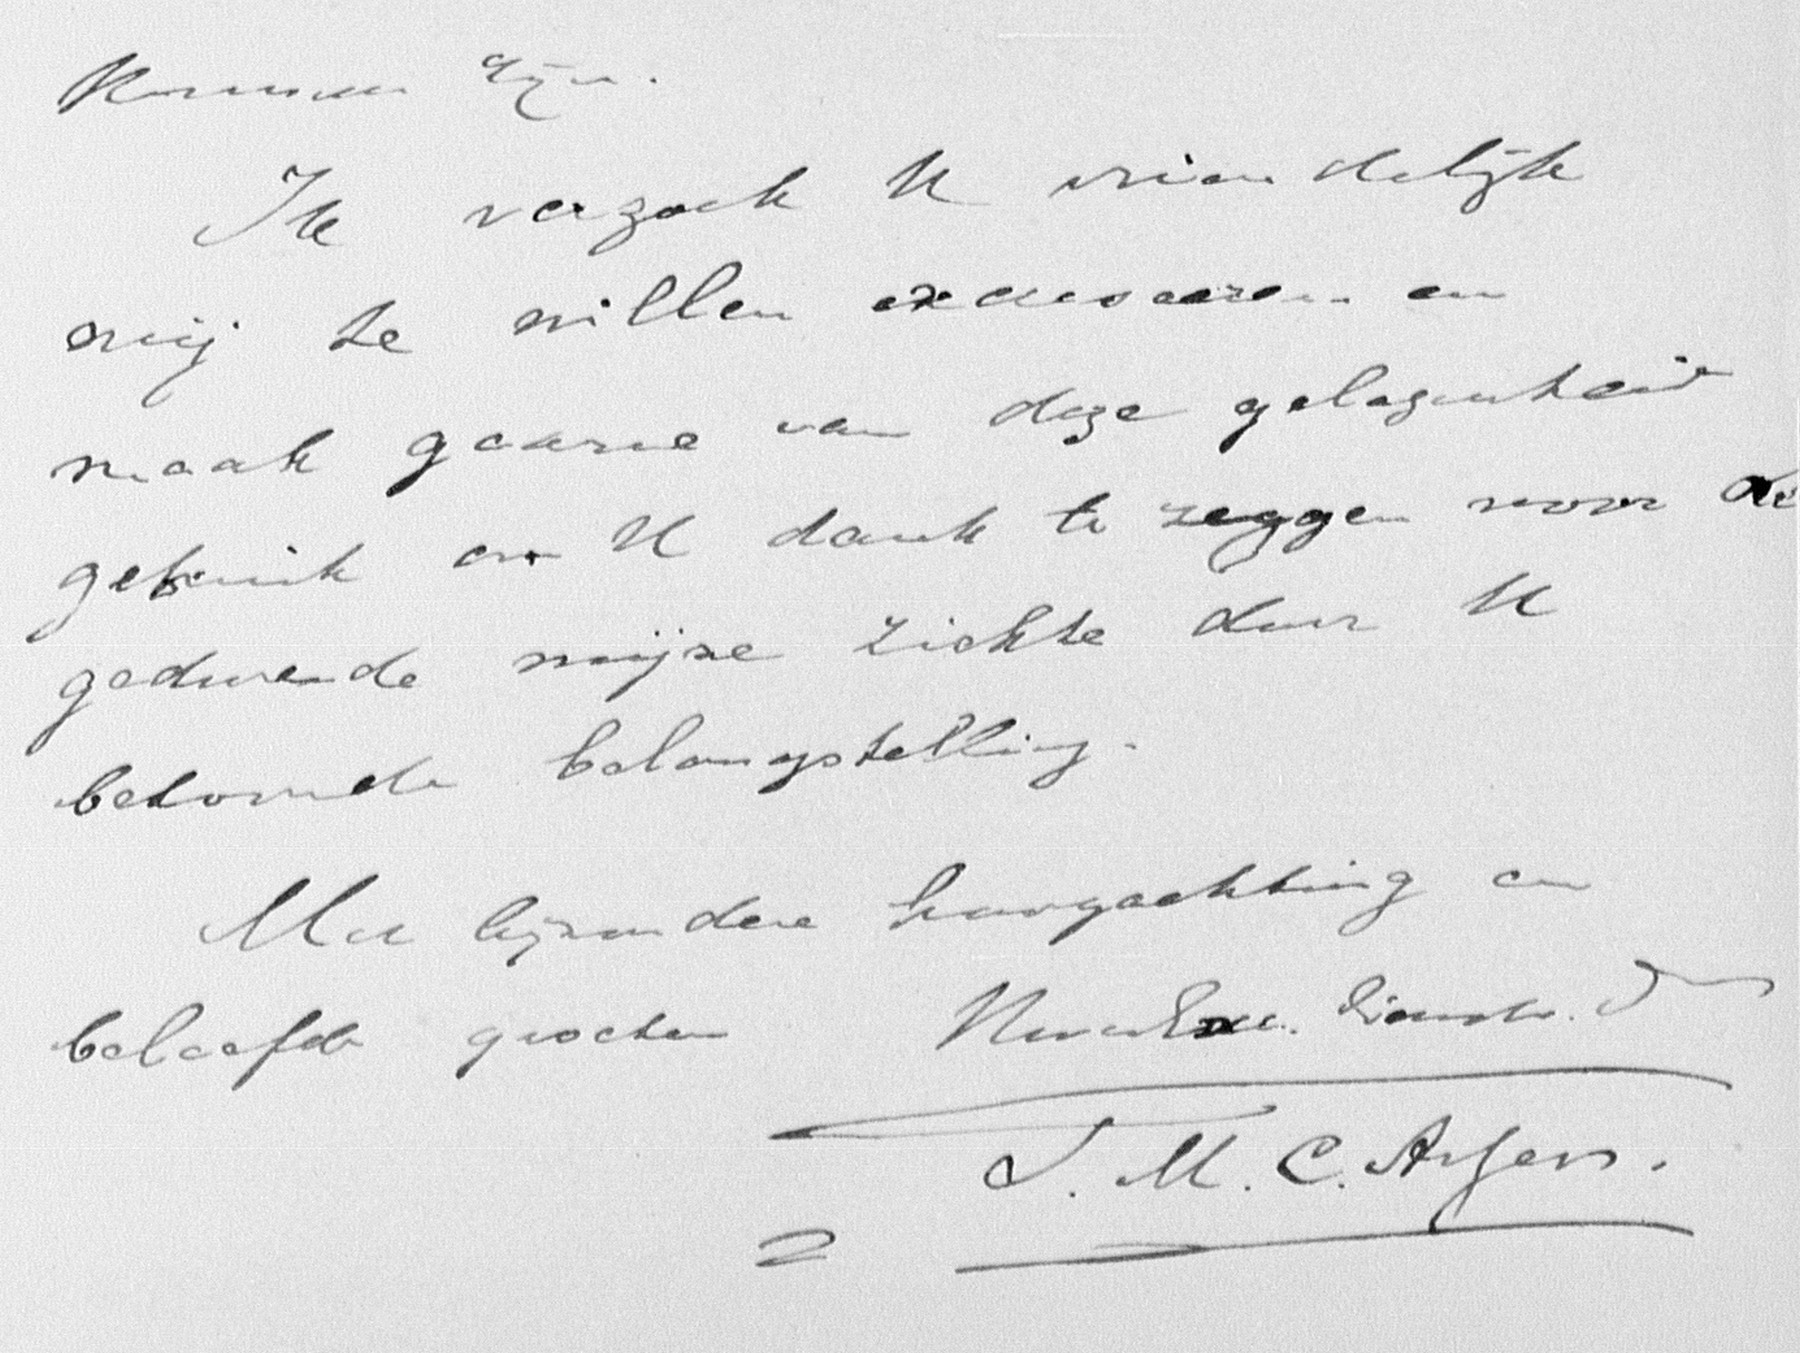 kunnen zijn.
Ik verzoek U vriendelijk
mij te willen excuseeren en
maak gaarne van deze gelegenheid
gebruik om U dank te zeggen voor de
gedurende mijne ziekte door U
betoonde belangstelling.
Met bijzondere hoogachting en
beleefde groeten Uwer Exc. dienstw. Dr
J. M. C. Asjers.